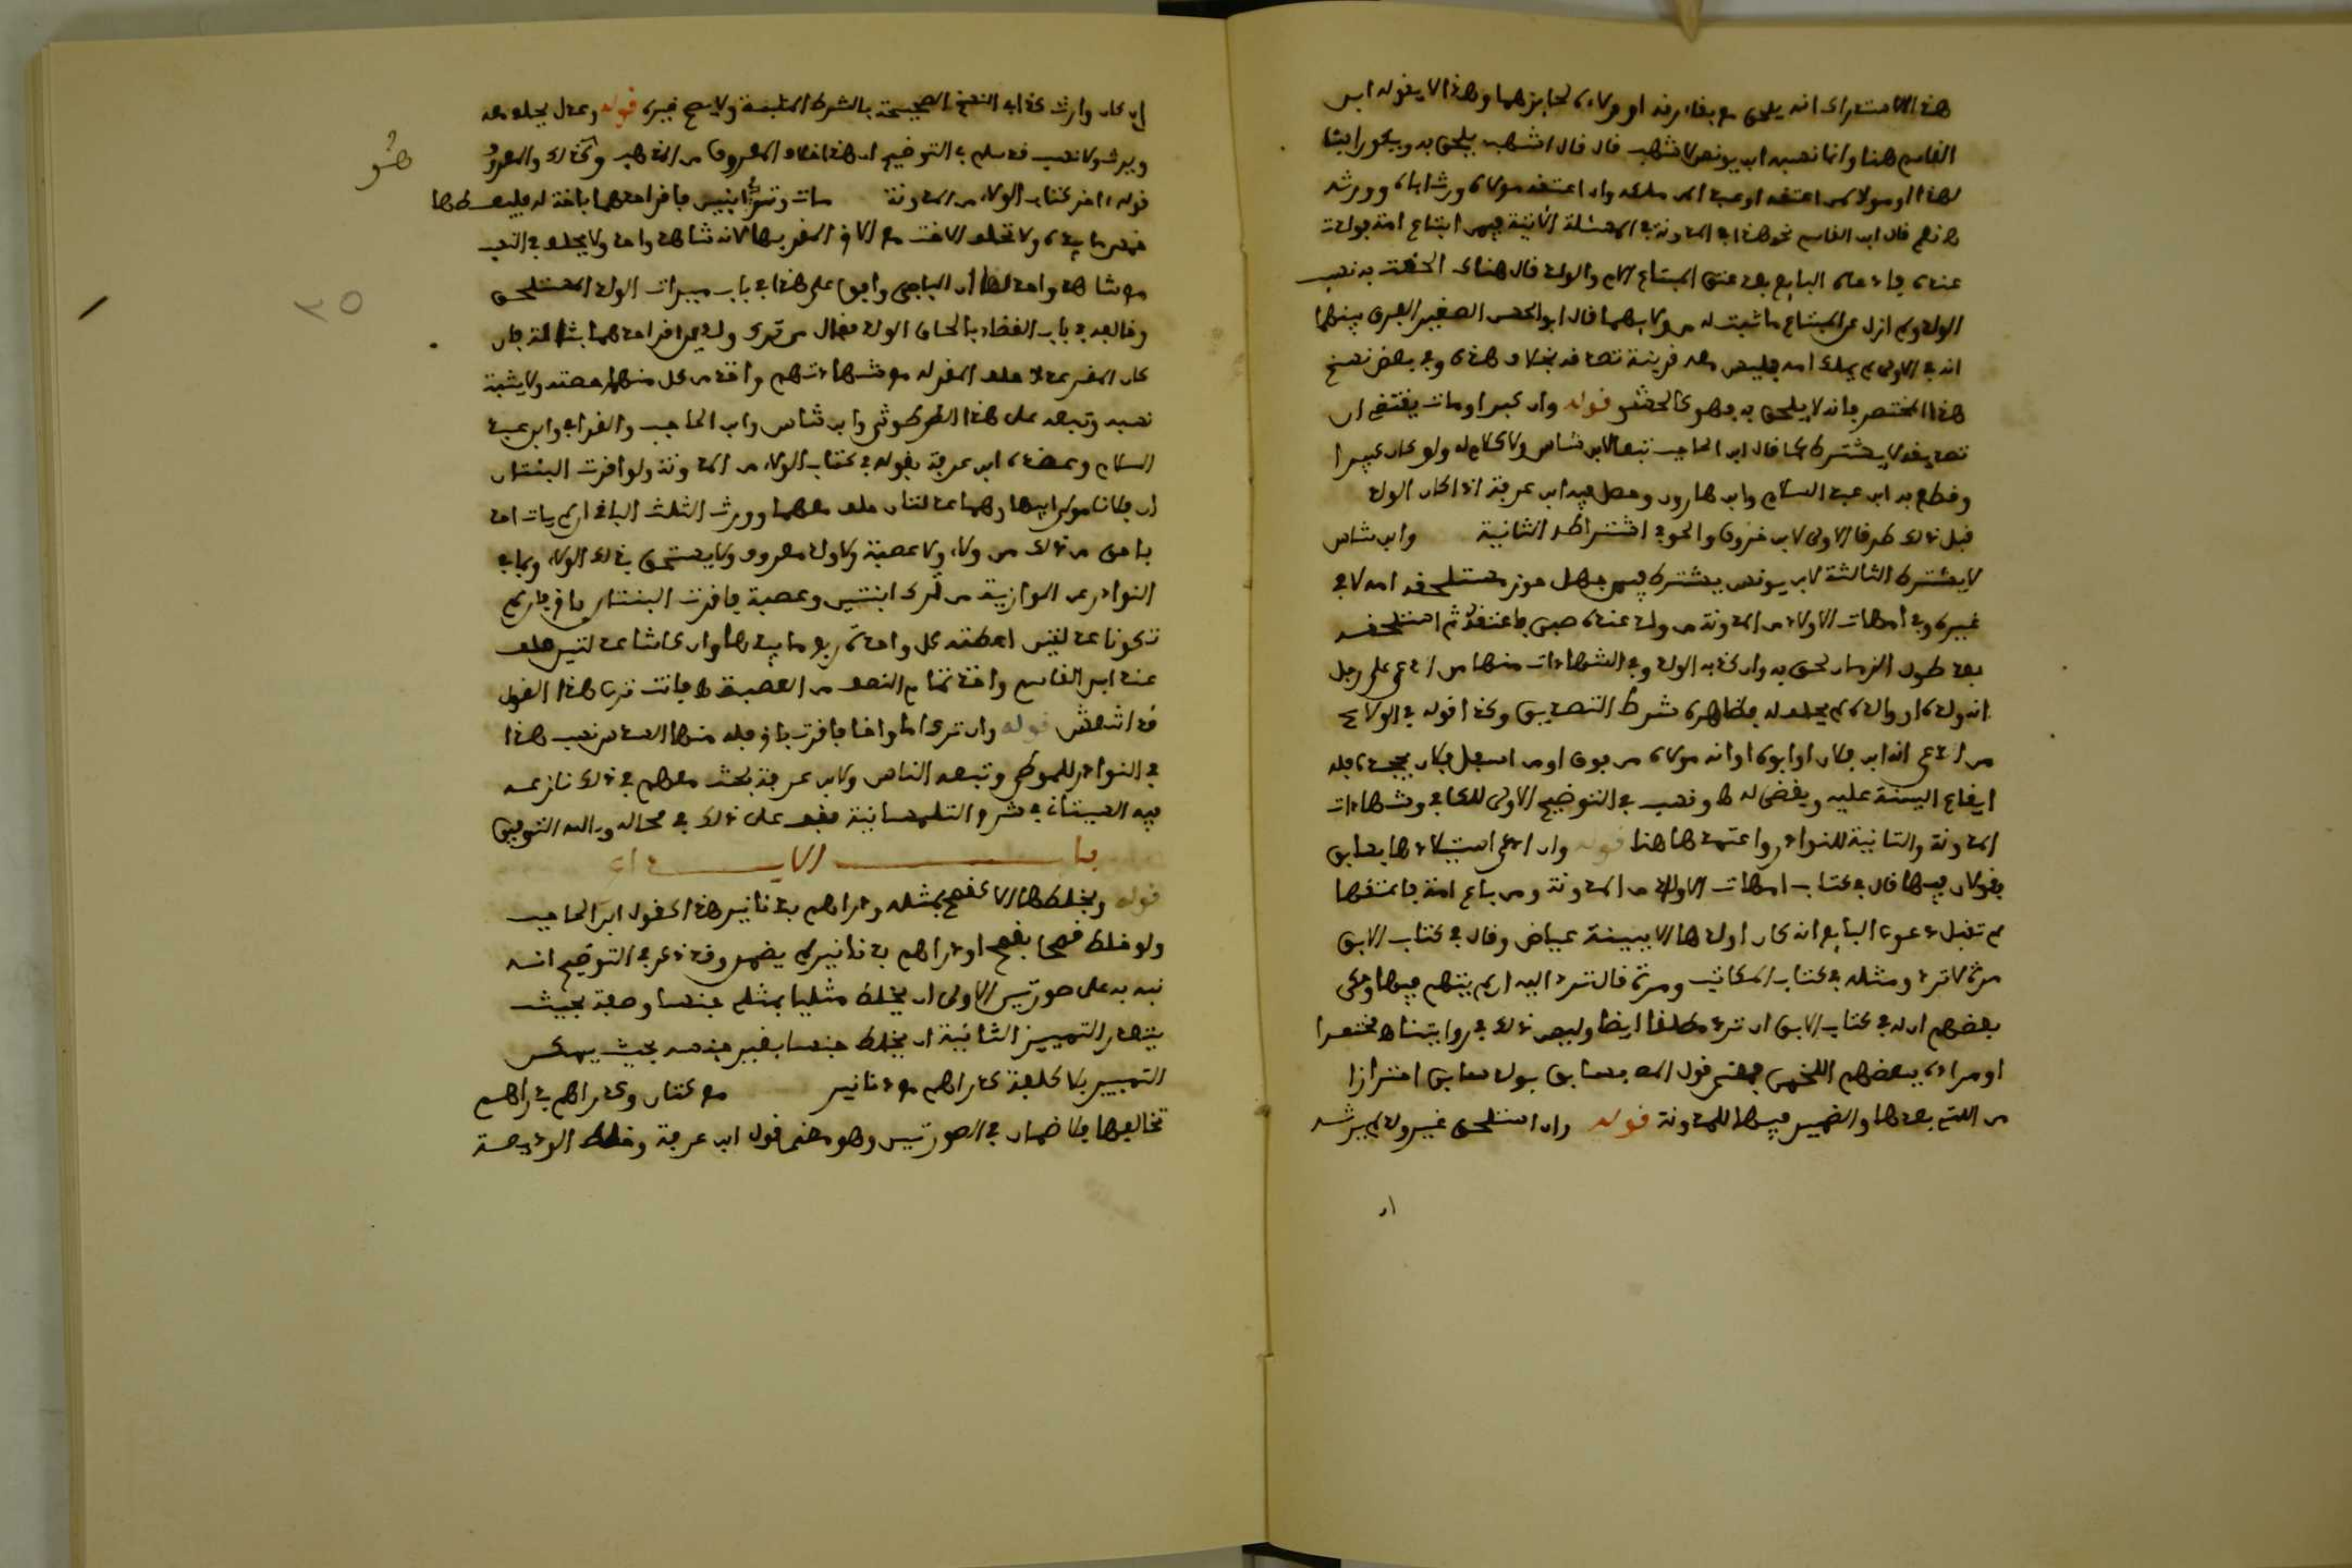 هذا الاستدراك انه يلحق مع بقاء رقه او ولاءه لحائزهما وهذا لا يقوله ابن
القاسم هنا وانما نسبه ابن يونس لاشهب قال قال اشهب يلحق به ويكون ابنا
لهذا ومولا لمن اعتقه او عبدا لمن ملكه وان اعتقه مولاه ورث اباه وورثه
نعم قال ابن القاسم نحو هذا في المدونة في المسئلة الثانية فيمن ابتاع امة فولدت
عنده فادعاه البايع بعد عتق المبتاع الام والولد قال هناك الحقت به نسب
الولد ولم ازل عن المبتاع ما ثبت له من ولايهما قال ابو الحسن الصغير الفرق بينهما
انه في الاولى لم يملك امه فليس معه قرينة تصدقه بخلاف هذه وفي بعض نسخ
هذا المختصر فانه لا يلحق به فهو كالحشو قوله وان كبر او مات يقتضي ان
تصديقه لا يشترط كما قال ابن الحاجب تبعا لابن شاس ولا كلام له ولو كان كبيرا
وقطع به ابن عبد السلام وابن هارون وحصل فيه ابن عرفة اذا كان الولد
قبل ذلك طرقا الاولى لابن خروف والحوفي اشتراطه الثانية وابن شاس
لا يشترط الثالثة لابن يونس يشترط فيمن جهل حوز مستلحقه امه لا في
غيره وفي امهات الاولاد من المدونة من ولد عنده صبي فاعتقه ثم استلحقه
بعد طول الزمان لحق به وان كذبه الولد وفي الشهادات منها من ادعى على رجل
انه ولده او والده لم يحلف له فظاهره شرط التصديق وكذا قوله في الولاء
من ادعى انه ابن فلان او ابوه او انه مولاه من فوق او من اسفل فلان يجحده فله
ايقاع البينة عليه ويقضى له ونسب في التوضيح الاولى للكافي وشهادات
المدونة والثانية للنوادر واعتمدها هنا قوله وان ادعى استيلادها بسابق
فقولان فيها قال في كتاب امهات الاولاد من المدونة ومن باع امة فاعتقها
لم تقبل دعوى البايع انه كان اولدها الا ببينة عياض وقال في كتاب الابق
مرة لا ترد ومثله في كتاب المكاتب ومرة قال ترد اليه ان لم يتهم فيها وحكى
بعضهم ان له في كتاب الابق ان ترد مطلقا ايضا وليس ذلك في روايتنا مختصرا
او مراده ببعضهم اللخمي قول المص بسابق بولد سابق احترازا
من التي بعدها والضمير فيها للمدونة قوله وان استلحق غير ولد لم يرثه
ان
ان كان وارث كذا في النسخ الصحيحة بالشرط المثبتة ولا يصح غيره قوله وعدل يحلف معه
ويرث ولا نسب قد سلم في التوضيح ان هذا خلاف المعروف من المذهب وكذلك والمعروف
هو
قوله اخر كتاب الولاء من المدونة مات وترك ابنين فاقر احدهما باخت له فليعطها
خمس ما بيده ولا تحلف الاخت مع الاخ المقر بها لانه شاهد واحد ولا يحلف في النسب
مع شاهد واحد لها ان الباجي وافق على هذا في باب ميراث الولد المستلحق
وخالفه في باب القضاء بالحاق الولد فقال من ترك ولدين اقر احدهما بثالث فان
كان المقر عدلا حلف المقر له مع شهادتهم واخذ من كل منهما حصته ولا يثبت
نسبه وتبعه على هذا الطرطوشي وابن شاس وابن الحاجب والقرافي وابن عبد
السلام وعضده ابن عرفة بقوله في كتاب الولاء من المدونة ولو اقرت البنتان
ان فلانا مولى ابيهما وهما عدلتان حلف معهما وورث الثلث الباقي ان لم يات احد
باحق من ذلك من ولاء ولا عصبة ولا ولد معروف ولا يستحق بذلك الولاء وبما في
النوادر عن الموازية من ترك ابنتين وعصبة فاقرت البنتان باخ فان لم
تكونا عدلتين اعطته كل واحدة ربع ما بيدها وان كانتا عدلتين حلف
عند ابن القاسم واخذ تمام النصف من العصبة فانت ترى هذا القول
قد انتعش قوله وان ترك اما واخا فاقرت باخ فله منها السدس نسب هذا
في النوادر للموطا وتبعه الناس ولابن عرفة بحث معهم في ذلك نازعه
فيه العبدوسي في شرح التلمسانية فقف على ذلك في محاله وبالله التوفيق
باب الايداع
قوله وبخلطها الا كقمح بمثله ودراهم بدنانير هذا كقول ابن الحاجب
ولو خلط قمحا بقمح او دراهم بدنانير لم يضمن وقد ذكر في التوضيح انه
نبه به على صورتين الاولى ان يخلط مثليا بمثله جنسا وصفة بحيث
يتعذر التمييز الثانية ان يخلط جنسا بغير جنسه بحيث يمكن
التمييز بلا كلفة كدراهم مع دنانير مع كتان وكدراهم بدراهم
تخالفها فلا ضمان في الصورتين وهو مقتضى قول ابن عرفة وخلط الوديعة
٣٥